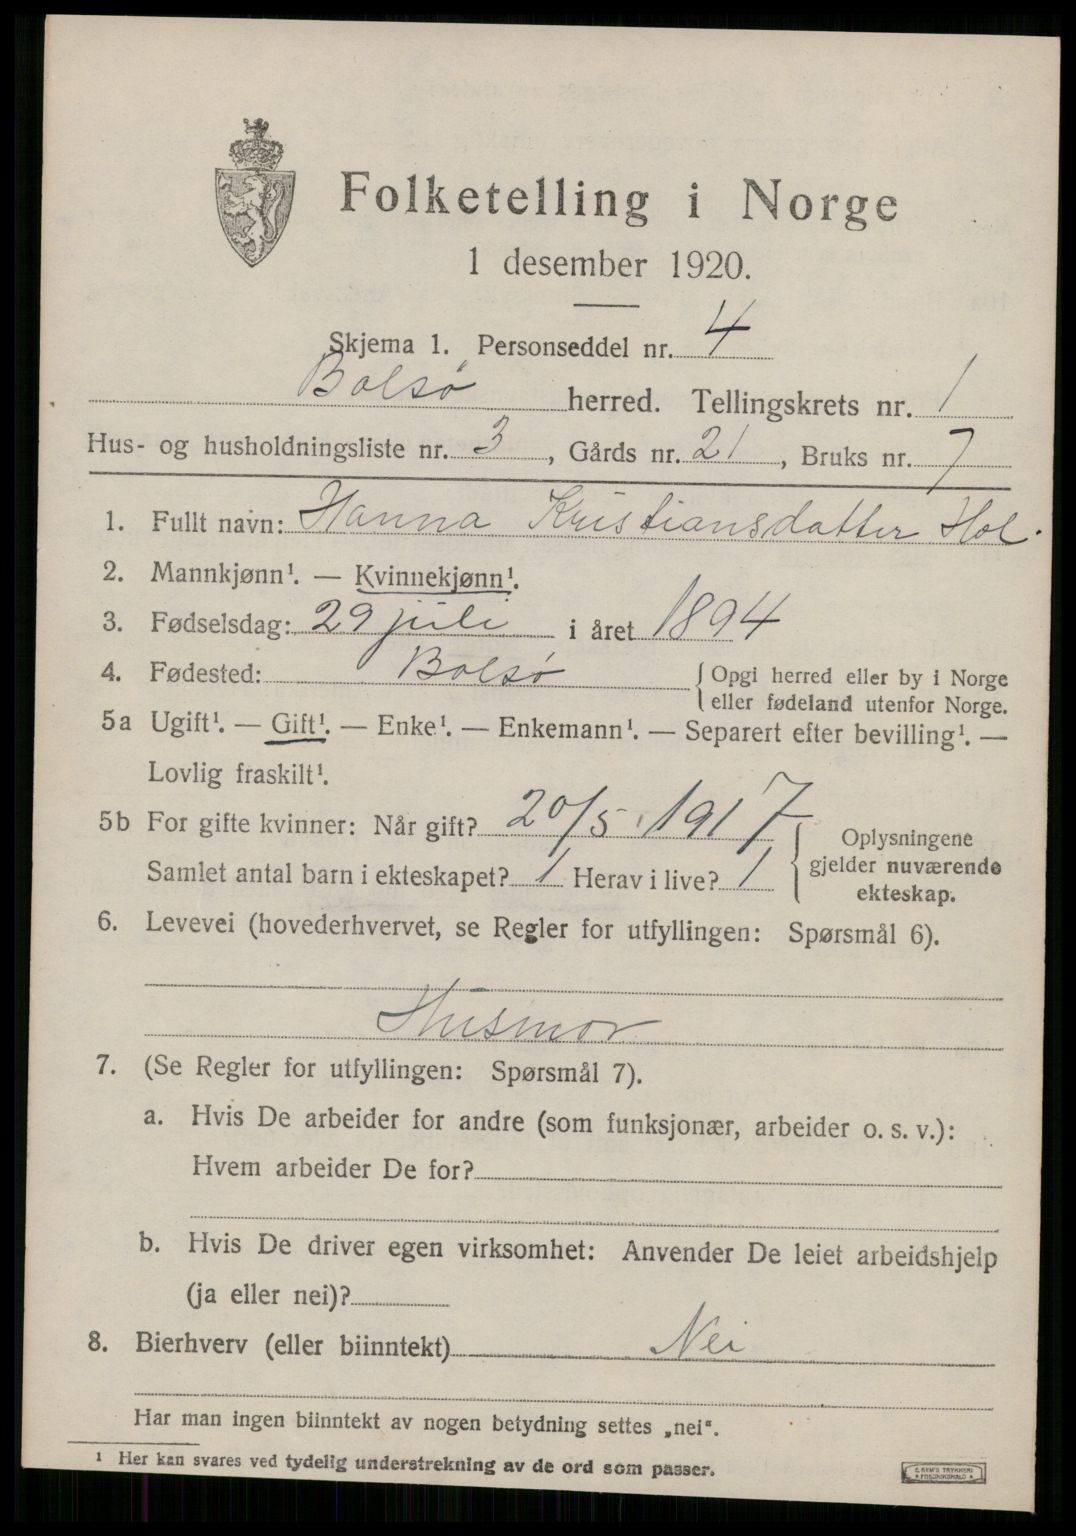 Folketelling i Norge
1 desember 1920.
Skjema 1. Personseddel nr. 4
Bolsø herred. Tellingskrets nr. 1
Hus- og husholdningsliste nr. 3, Gårds nr. 21, Bruks nr. 7
1. Fullt navn: Hanna Kristiansdatter Hol.
2. Mannkjønn¹. — Kvinnekjønn¹.
3. Fødselsdag: 29 juli i året 1894
4. Fødested: Bolsø { Opgi herred eller by i Norge
eller fødeland utenfor Norge.
5a Ugift¹. — Gift¹. — Enke¹. — Enkemann¹. — Separert efter bevilling¹. —
Lovlig fraskilt¹.
5b For gifte kvinner: Når gift? 20/5 1917
Samlet antal barn i ekteskapet? 1 Herav i live? 1
{ Oplysningene
gjelder nuværende
ekteskap.
6. Levevei (hovederhvervet, se Regler for utfyllingen: Spørsmål 6).
Husmor
7. (Se Regler for utfyllingen: Spørsmål 7).
a. Hvis De arbeider for andre (som funksjonær, arbeider o. s. v.):
Hvem arbeider De for?
b. Hvis De driver egen virksomhet: Anvender De leiet arbeidshjelp
(ja eller nei)?
8. Bierhverv (eller biinntekt) Nei
Har man ingen biinntekt av nogen betydning settes „nei“.
¹ Her kan svares ved tydelig understrekning av de ord som passer.